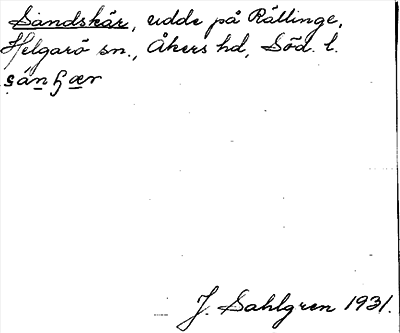 Sandskär, udde på Rällinge,
Helgarö sn., Åkers hd, Söd. l.
J. Sahlgren 1931.